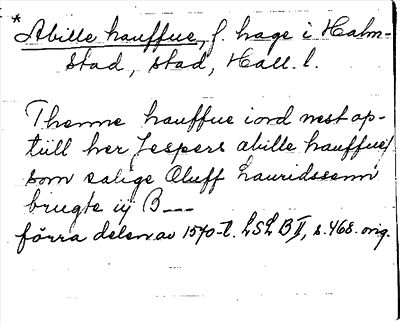 * Abille hauffue, f. hage i Halm-
stad, stad, Hall. l.
Thenne hauffue iord nest op-
tiill her Jespers abille hauffue/
som salige Oluff Lauridssenn
brugte iij B---
förra delen av 1570-t. LSLB II, s. 468. orig.